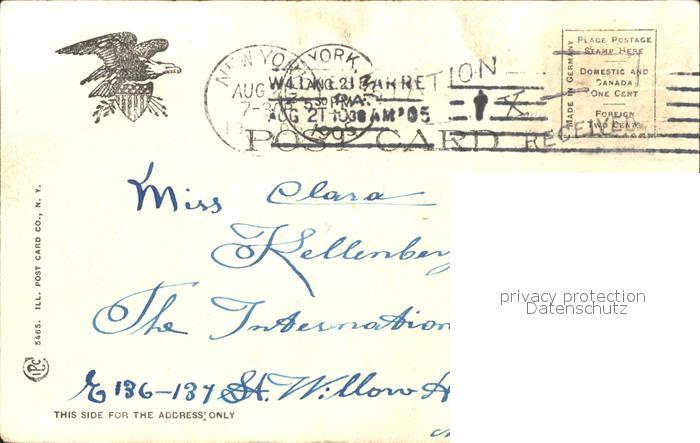 NEW YORK
AUG 21
5 30 PM
1905
AUG 21 10 30 AM '05
RECEIVED
PLACE POSTAGE
STAMP HERE
DOMESTIC AND
CANADA
ONE CENT
FOREIGN
TWO CENTS
MADE IN GERMANY
POST CARD
Miss Clara
Kellenberg
The Internation
E 136-137 St. Willow
5465. ILL. POST CARD CO., N. Y.
IPC
THIS SIDE FOR THE ADDRESS ONLY
privacy protection
Datenschutz